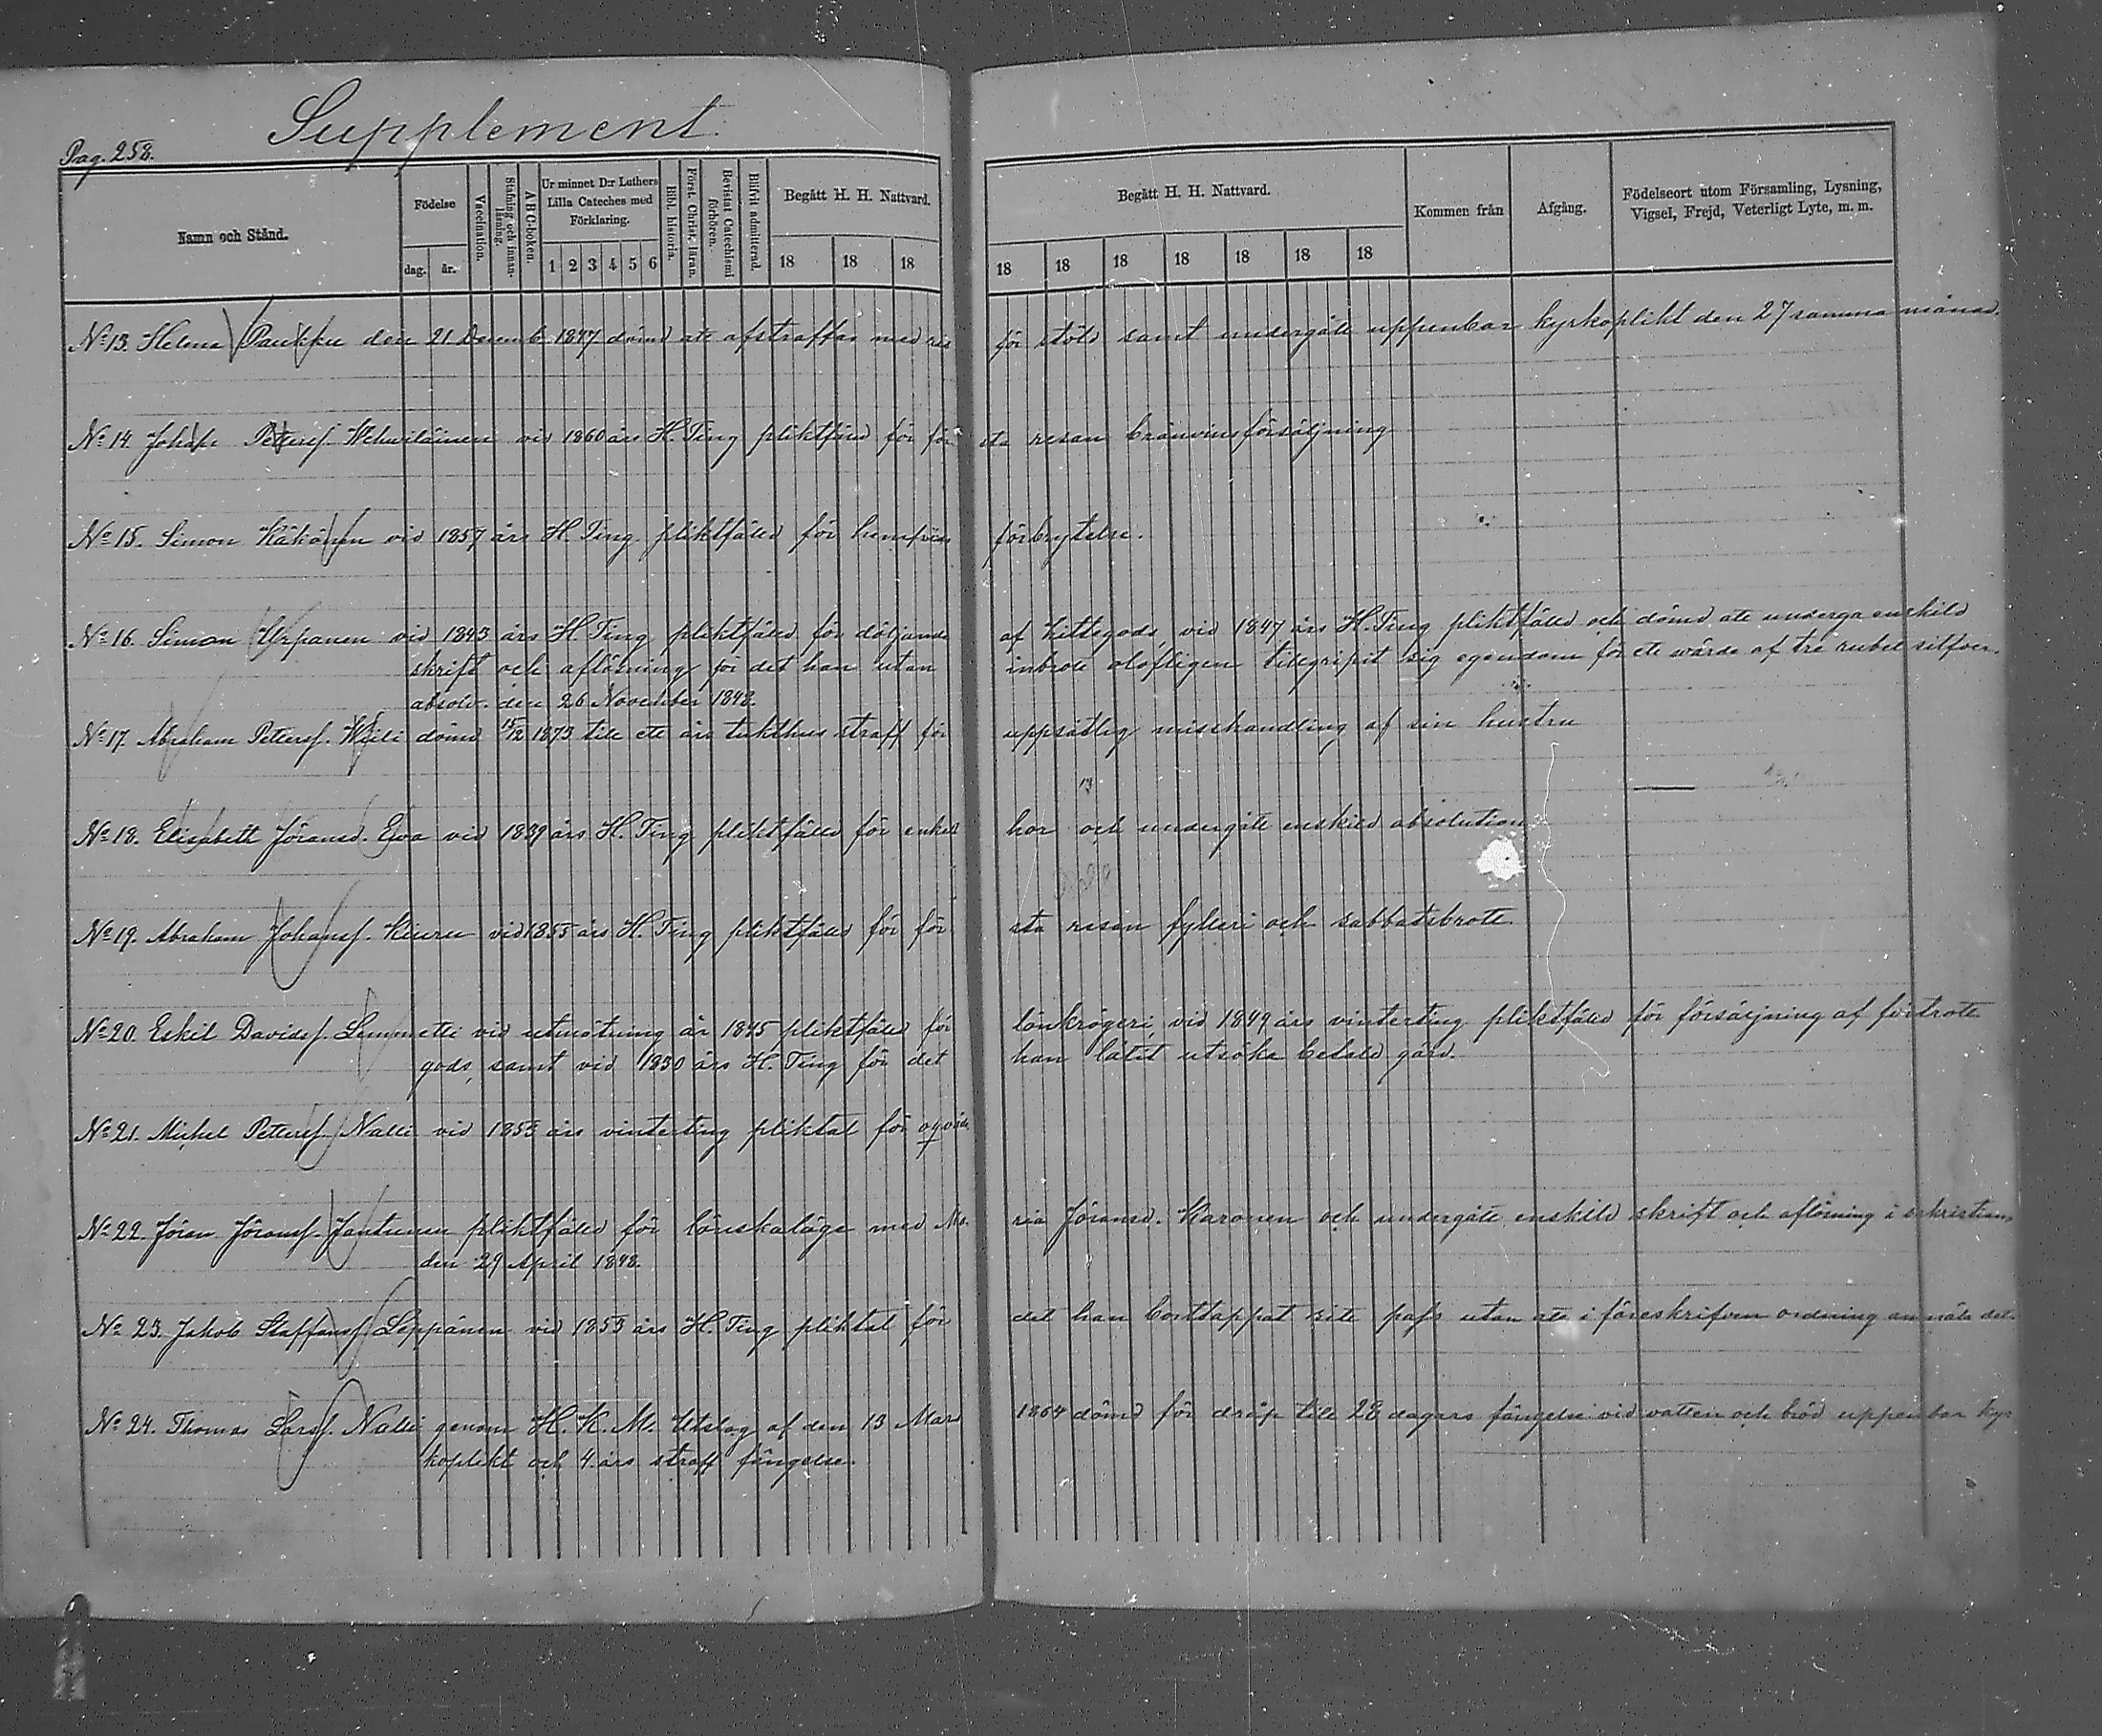 Supplement.
Pag. 258.
Namn och Stånd.
Födelse
dag. år.
Vaccination.
Stafning och innanläsning.
A B C-boken.
Ur minnet D:r Luthers Lilla Cateches med Förklaring.
1 2 3 4 5 6
Bibl. historia.
Först. Christ. läran.
Bevistat Catechismi förhören.
Blifvit admitterad.
Begått H. H. Nattvard.
18 18 18
Begått H. H. Nattvard.
18 18 18 18 18 18 18
Kommen från
Afgång.
Födelseort utom Församling, Lysning, Vigsel, Frejd, Veterligt Lyte, m. m.
No 13. Helena Paukku den 21 Decemb. 1847 dömd att afstraffas med ris för stöld samt undergått uppenbar kyrkoplikt den 27 samma månad.
No 14. Johan Pettersf. Wehviläinen vid 1860 års H. Ting pliktfäld för första resan bränvinsförsäljning
No 15. Simon Käkönen vid 1857 års H. Ting pliktfäld för hemfrids förbrytelse.
No 16. Simon Urpanen vid 1843 års H. Ting pliktfäld för döljande af hittegods, vid 1847 års H. Ting pliktfäld och dömd att undergå enskild
skrift och aflösning för det han utan inbrott olofligen tillgripit sig egendom för ett värde af tre rubel silfver.
absolv. den 26 November 1848.
No 17. Abraham Pettersf. dömd 15/12 1873 till ett års tukthus straff för uppsåtlig misshandling af sin hustru
No 18. Elisabeth Jöransd. Ewa vid 1839 års H. Ting pliktfäld för enkelt hor och undergått enskild absolution
No 19. Abraham Johansf. Kiuru vid 1855 års H. Ting pliktfäld för första resan fylleri och sabbatsbrott.
No 20. Eskil Davidsf. Lemmetti vid utmätning år 1845 pliktfäld för lönkrögeri, vid 1849 års vinterting pliktfäld för försäljning af förbrott
gods, samt vid 1850 års H. Ting för det han låtit utsöka betald gärd.
No 21. Michel Pettersf. Nalli vid 1853 års vinterting pliktat för oqväde
No 22. Jöran Jöransf. Jantunen pliktfäld för lönskaläge med Maria Jöransd. Karonen och undergått enskild skrift och aflösning i sakristian
den 29 April 1848.
No 23. Jakob Staffansf. Leppänen vid 1853 års H. Ting pliktat för det han borttappat sitt pass utan att i föreskrifven ordning anmäla det.
No 24. Thomas Larsf. Nalli genom H. K. M. Utslag af den 13 Mars 1864 dömd för dråp till 28 dagars fängelse vid vatten och bröd uppenbar kyr=
koplikt och 4. års straff fängelse.